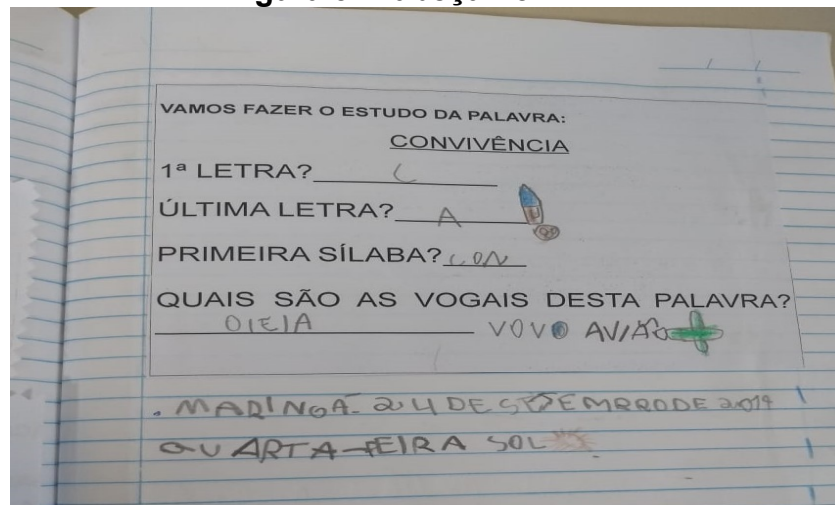 VAMOS FAZER O ESTUDO DA PALAVRA:
CONVIVÊNCIA
1ª LETRA? C
ÚLTIMA LETRA? A
PRIMEIRA SÍLABA? CON
QUAIS SÃO AS VOGAIS DESTA PALAVRA?
OIEIA VOVO AVIÃO
. MARINGÁ 24 DE SETEMBRO DE 2019
QUARTA-FEIRA SOL